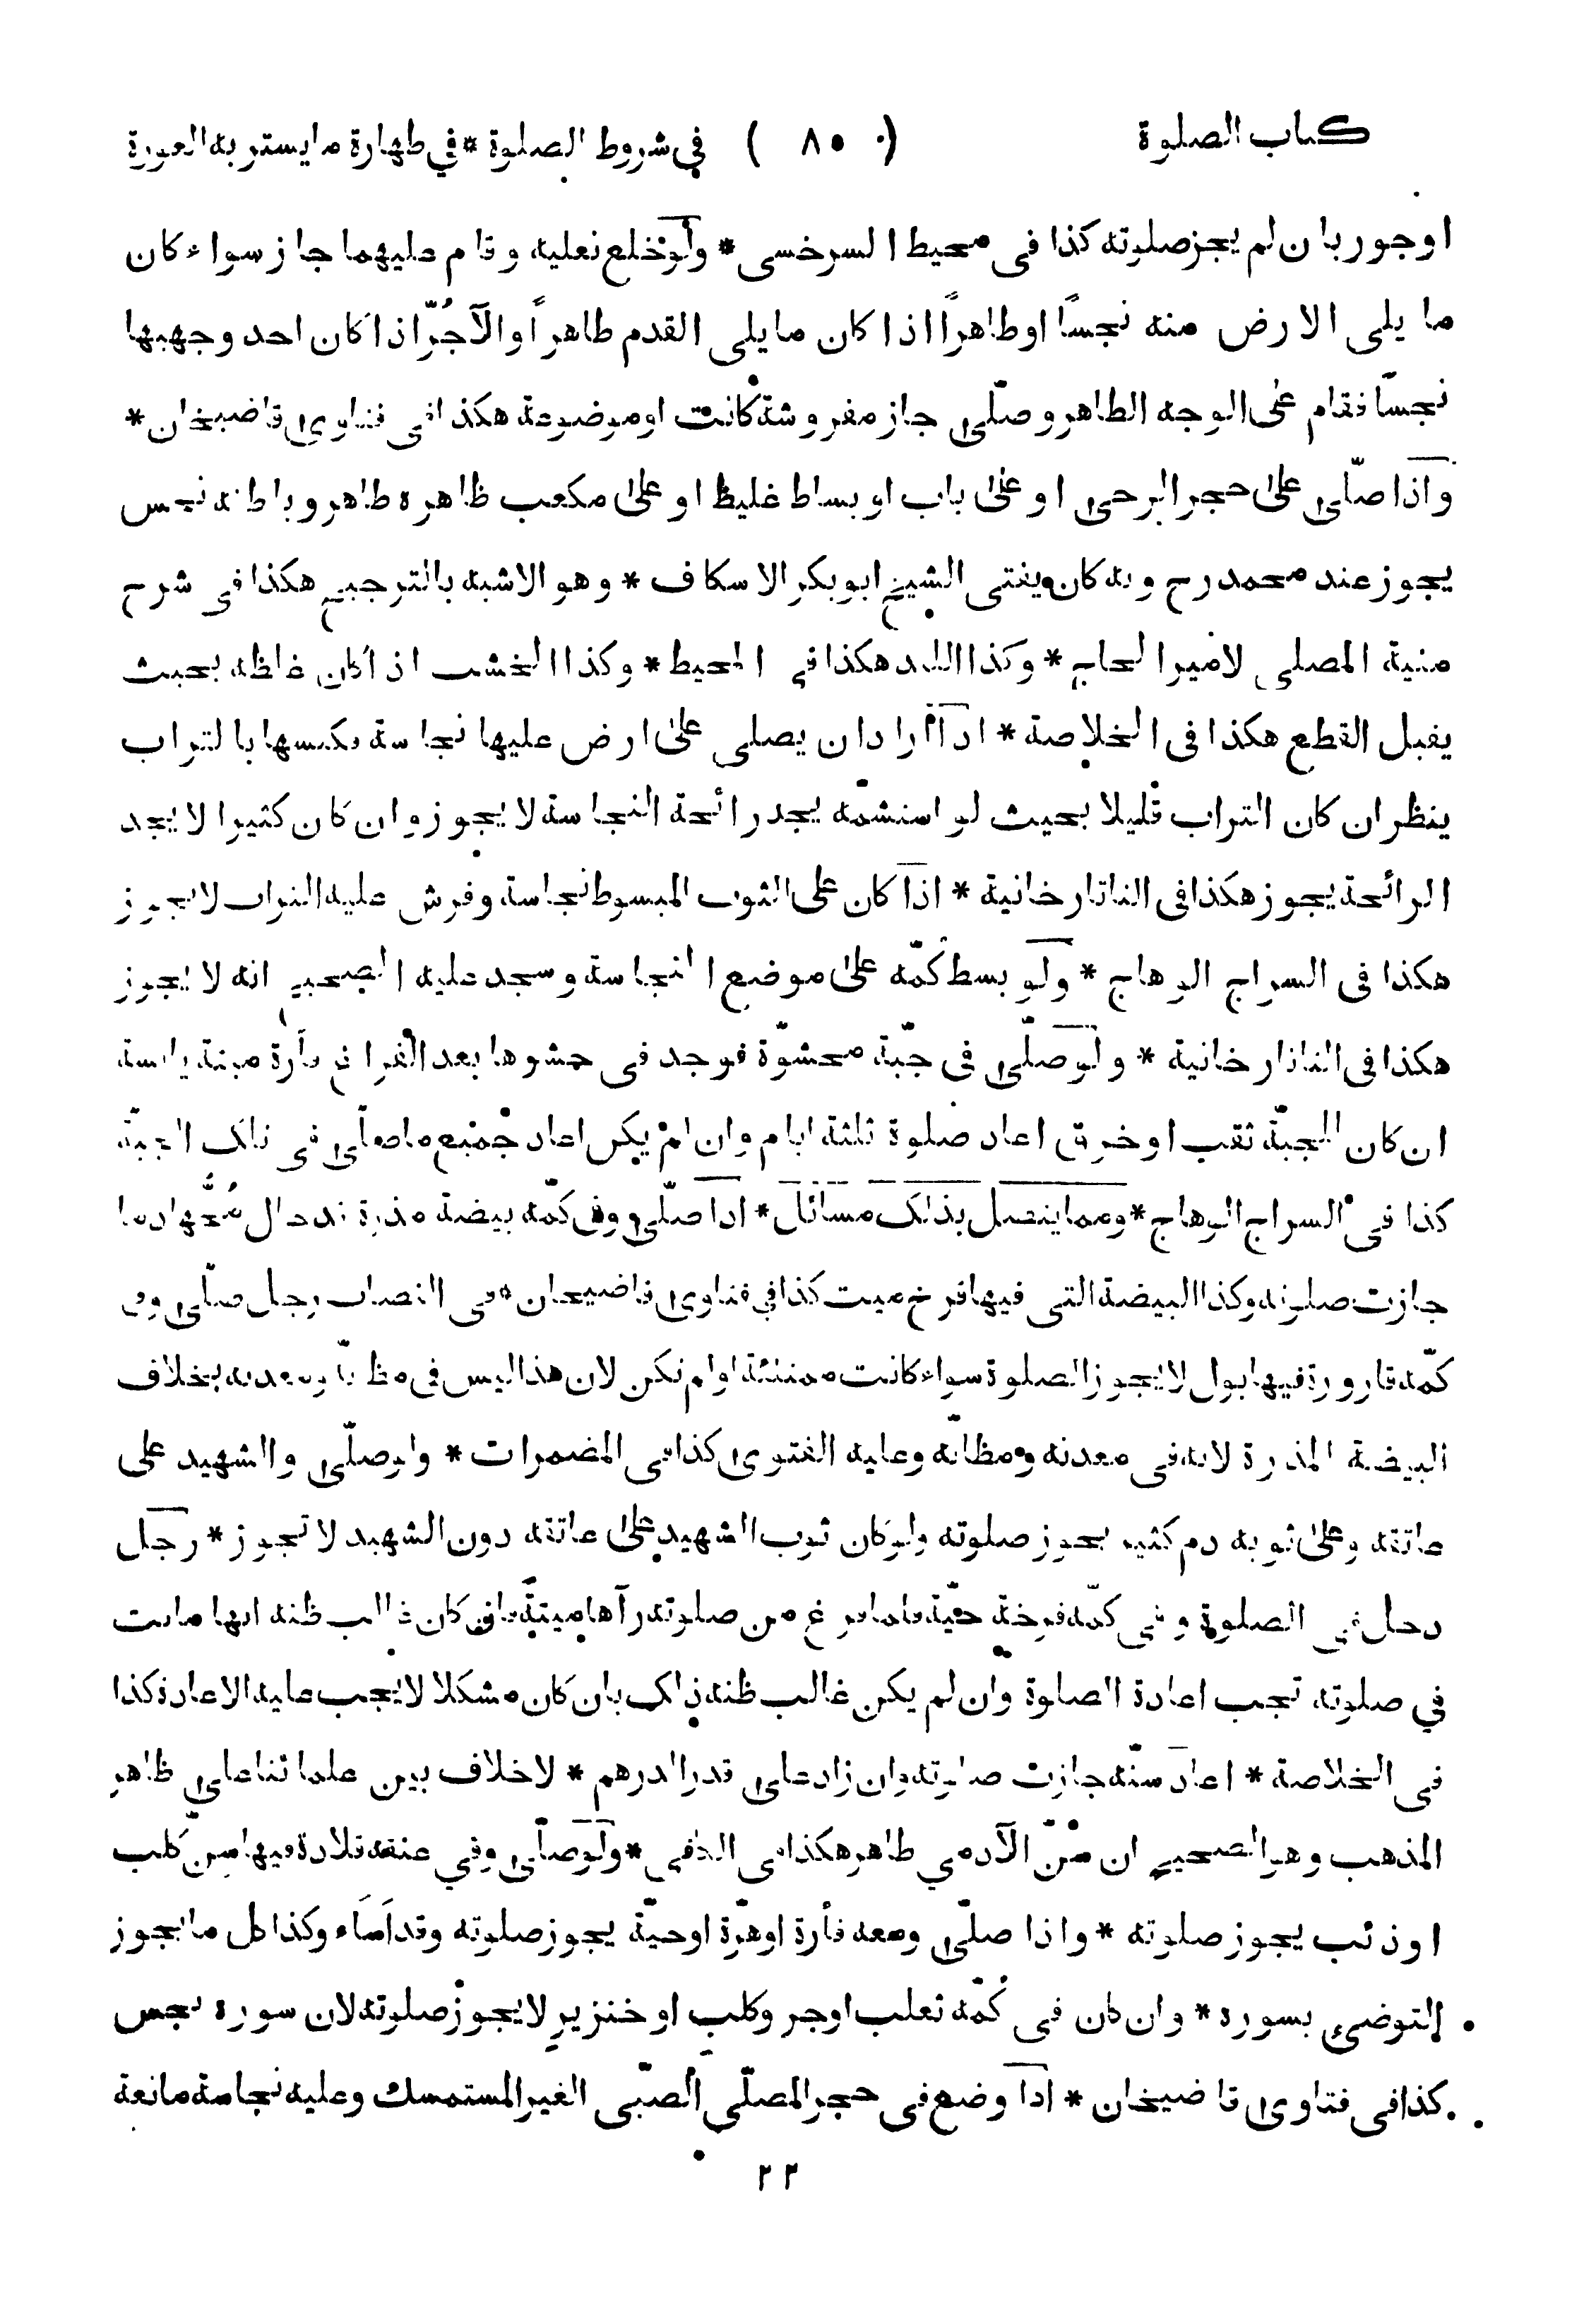 كتاب الصلوة ( ٨٥ ) في شروط الصلوة * في طهارة ما يستر به العورة
او جوربان لم يجز صلوته كذا فى محيط السرخسى * ولو خلع نعليه وقام عليهما جاز سواء كان
ما يلى الارض منه نجسًا او طاهرًا اذا كان ما يلى القدم طاهرًا والآجُرّ اذا كان احد وجهيها
نجسًا فقام على الوجه الطاهر وصلّى جاز مفروشة كانت او موضوعة هكذا فى فتاوى قاضيخان *
واذا صلّى على حجر الرحى او على باب او بساط غليظ او على مكعب ظاهره طاهر وباطنه نجس
يجوز عند محمد رح وبه كان يفتى الشيخ ابو بكر الاسكاف * وهو الاشبه بالترجيح هكذا فى شرح
منية المصلى لامير الحاج * وكذا اللبد هكذا فى المحيط * وكذا الخشب اذا كان غلظه بحيث
يقبل القطع هكذا فى الخلاصة * اذا اراد ان يصلى على ارض عليها نجاسة فكبسها بالتراب
ينظر ان كان التراب قليلا بحيث لو استشمّه يجد رائحة النجاسة لا يجوز وان كان كثيرا لا يجد
الرائحة يجوز هكذا فى التاتارخانية * اذا كان على الثوب المبسوط نجاسة وفرش عليه التراب لا يجوز
هكذا فى السراج الوهاج * ولو بسط كمّه على موضع النجاسة وسجد عليه الصحيح انه لا يجوز
هكذا فى التاتارخانية * ولو صلّى فى جبّة محشوّة فوجد فى حشوها بعد الفراغ فأرة ميتة يابسة
ان كان للجبّة ثقب او خرق اعاد صلوة ثلثة ايام وان لم يكن اعاد جميع ما صلّى فى تلك الجبّة
كذا فى السراج الوهاج * ومما يتصل بذلك مسائل * اذا صلّى وفى كمّه بيضة مذرة قد حال مُحُّها دما
جازت صلوته وكذا البيضة التى فيها فرخ ميت كذا في فتاوى قاضيخان * فى النصاب رجل صلّى وفى
كمّه قارورة فيها بول لا يجوز الصلوة سواء كانت ممتلئة او لم تكن لان هذا ليس فى مظانّه ومعدنه بخلاف
البيضة المذرة لانه فى معدنه ومظانّه وعليه الفتوى كذا فى المضمرات * ولو صلّى والشهيد على
عاتقه وعلى ثوبه دم كثير يجوز صلوته ولو كان ثوب الشهيد على عاتقه دون الشهيد لا تجوز * رجل
دخل فى الصلوة وفى كمّه فرخة حيّة فلما فرغ من صلوته رآها ميتة فان كان غالب ظنه انها ماتت
في صلوته تجب اعادة الصلوة وان لم يكن غالب ظنه ذلك بان كان مشكلا لا يجب عليه الاعادة كذا
فى الخلاصة * اعاد سنّه جازت صلوته وان زاد على قدر الدرهم * لا خلاف بين علمائنا على ظاهر
المذهب وهو الصحيح ان سنّ الآدمي طاهر هكذا فى الكافى * ولو صلّى وفي عنقه قلادة فيها سنّ كلب
او ذئب يجوز صلوته * واذا صلّى ومعه فأرة او هرّة او حيّة يجوز صلوته وقد اَسَاء وكذا كل ما يجوز
التوضى بسوره * وان كان فى كُمّه ثعلب او جرو كلب او خنزير لا يجوز صلوته لان سوره نجس
كذا فى فتاوى قاضيخان * اذا وضع فى حجر المصلّي الصّبى الغير المستمسك وعليه نجاسة مانعة
٢٢